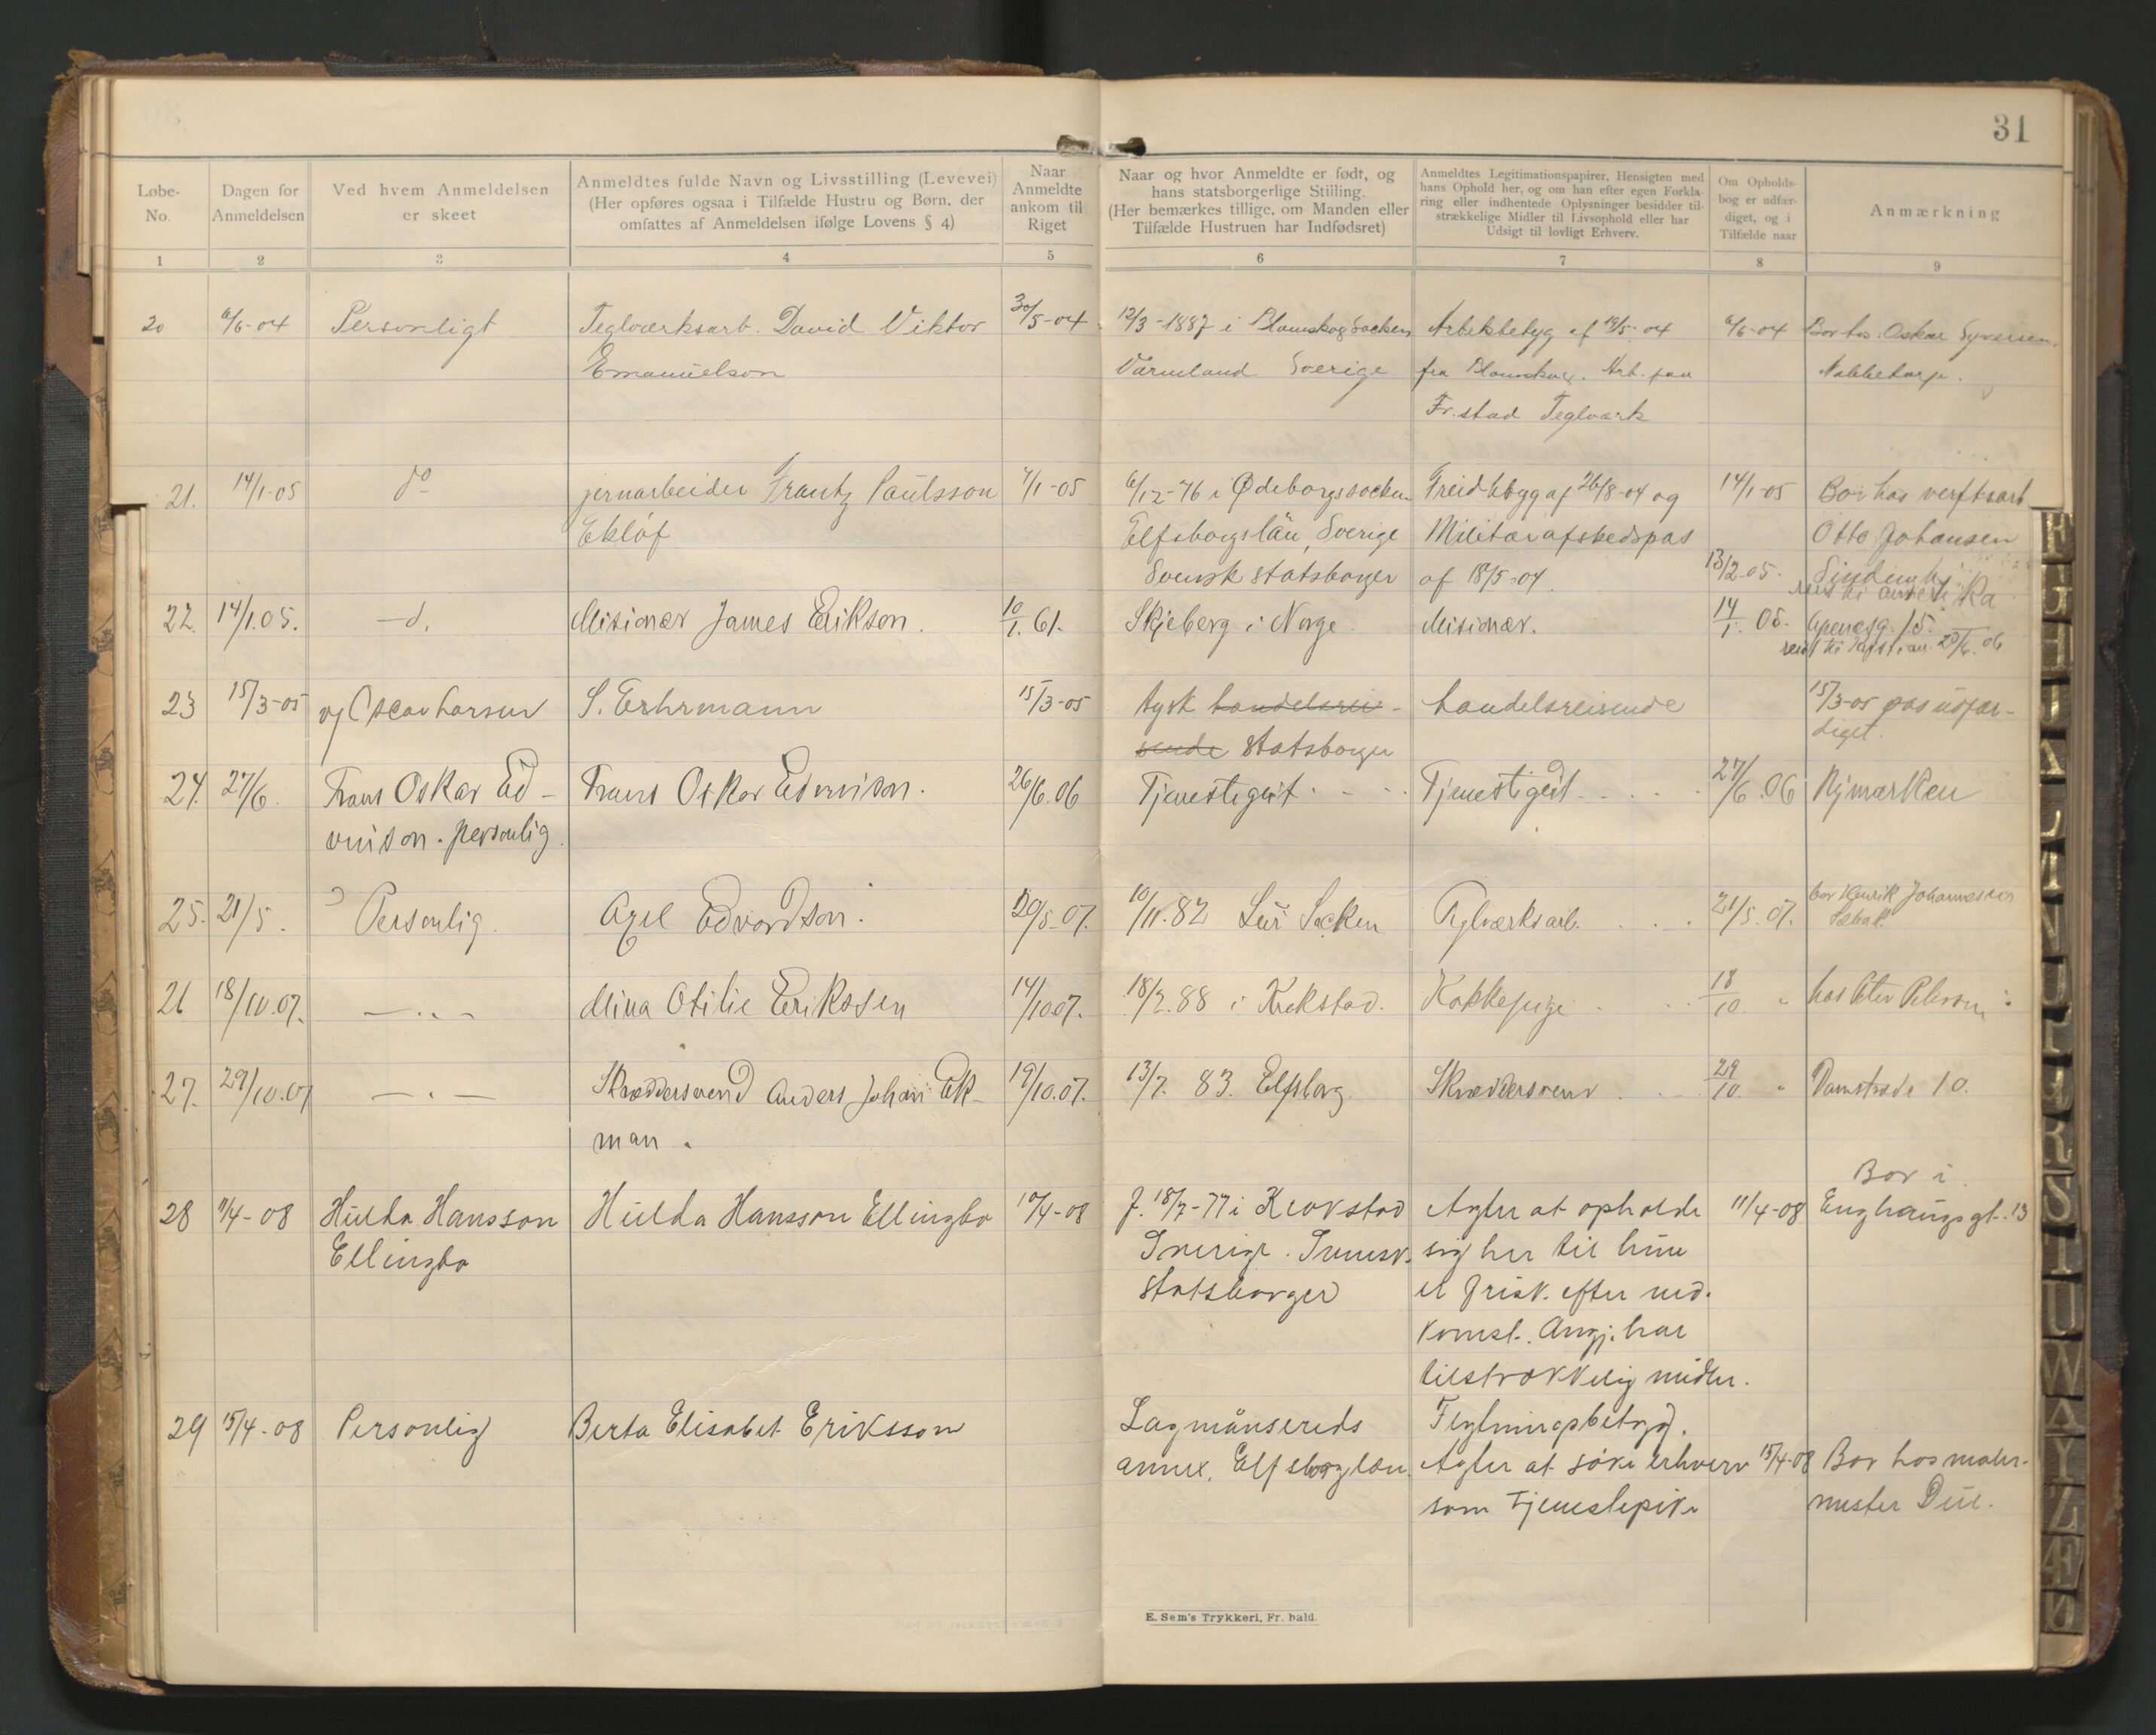 31
Løbe-
No.
Dagen for
Anmeldelsen
Ved hvem Anmeldelsen
er skeet
Anmeldtes fulde Navn og Livsstilling (Levevei)
(Her opføres ogsaa i Tilfælde Hustru og Børn, der
omfattes af Anmeldelsen ifølge Lovens § 4)
Naar
Anmeldte
ankom til
Riget
Naar og hvor Anmeldte er født, og
hans statsborgerlige Stiiling.
(Her bemærkes tillige, om Manden eller
Tilfælde Hustruen har Indfødsret)
Anmeldtes Legitimationspapirer, Hensigten med
hans Ophold her, og om han efter egen Forkla-
ring eller indhentede Oplysninger besidder til-
strækkelige Midler til Livsophold eller har
Udsigt til lovligt Erhverv.
Om Opholds-
bog er udfær-
diget, og i
Tilfælde naar
Anmærkning
1 2 3 4 5 6 7 8 9
20 6/6-04 Personligt Teglværksarb. David Viktor 30/5-04 12/3-1887 i Blomskog Socken Arbeksbetyg af 19/5-04 6/6-04 Bor hos Oskar Syversen
Emanuelson Värmland Sverige fra Blomskog. Arb. paa Nabbetorp.
Fr.stad Teglværk
21. 14/1-05 do jernarbeider Frantz Paulsson 7/1-05 6/12-76 i Ødeborgssocken Freidbebyg af 26/8-04 og 14/1-05 Bor hos verftsarb
Eklöf Elfsborgslän, Sverige Militærafskedspas Otto Johansen
Svensk statsborger af 18/5-04 13/2-05.
reist til amerika
22. 14/1.05. -d. Misionær James Erikson. 10/1.61. Skjeberg i Norge Misionær. 14/1.05. 15.
reist til 20/6.06
23 15/3-05 Oscar Larsen S. Erhrmann 15/3-05 tysk handelsrei- handelsreisende 15/3-05 pas udfær-
sende statsborger diget.
24. 27/6. Frans Oskar Ed- Frans Oskar Edvinson. 26/6.06 Tjenestegut Tjenestegut 27/6.06 Nymarken
vinson. personlig.
25. 21/5. Personlig. Axel Edvardson. 20/5-07. 10/11.82 Lur Socken Teglværksarb. 21/5.07. bor Henrik Johannesen
26 18/10.07. -..- Mina Otilie Eriksen 14/10.07. 18/2.88 i Krokstad. Kokkepige 18/10. " hos Peter Peterson
27. 29/10.07 -.- Skræddersvend Anders Johan Ek- 19/10.07. 13/7. 83. Elfsborg Skræddersvend 29/10. " Damstræde 10.
man.
Bor i
28 11/4-08 Hulda Hansson Hulda Hansson Ellingbo 10/4-08 f. 18/7-77 i Krokstad Agter at opholde 11/4-08 Enghaugsgt. 13
Ellingbo Sverige. Svensk. sig her til hun
statsborger er frisk efter ned-
komst. Angj. har
tilstrækkelig midler.
29 15/4-08 Personlig Berta Elisabet Eriksson Lagmansereds Flytningsbetyg.
annex. Elfsborg læn. Agter at söke erhverv 15/4-08 Bor hos maler-
som tjenestepike mester Due.
E. Sem's Trykkeri, Fr. hald.